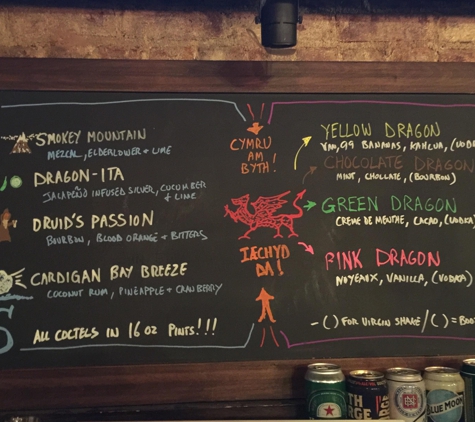 SMOKEY MOUNTAIN
MEZCAL, ELDERFLOWER & LIME
DRAGON-ITA
JALAPEÑO INFUSED SILVER, CUCUMBER
& LIME
DRUID'S PASSION
BOURBON, BLOOD ORANGE & BITTERS
CARDIGAN BAY BREEZE
COCONUT RUM, PINEAPPLE & CRANBERRY
ALL COCTELS IN 16 OZ PINTS!!!
CYMRU
AM
BYTH!
IECHYD
DA!
YELLOW DRAGON
VAN, 99 BANANAS, KAHLUA,
CHOCOLATE DRAGON
MINT, CHOLLATE, (BOURBON)
GREEN DRAGON
CREME DE MENTHE, CACAO,
PINK DRAGON
NOYEAUX, VANILLA, (VODKA)
-( ) FOR VIRGIN SHAKE/( ) =
BLUE MOON